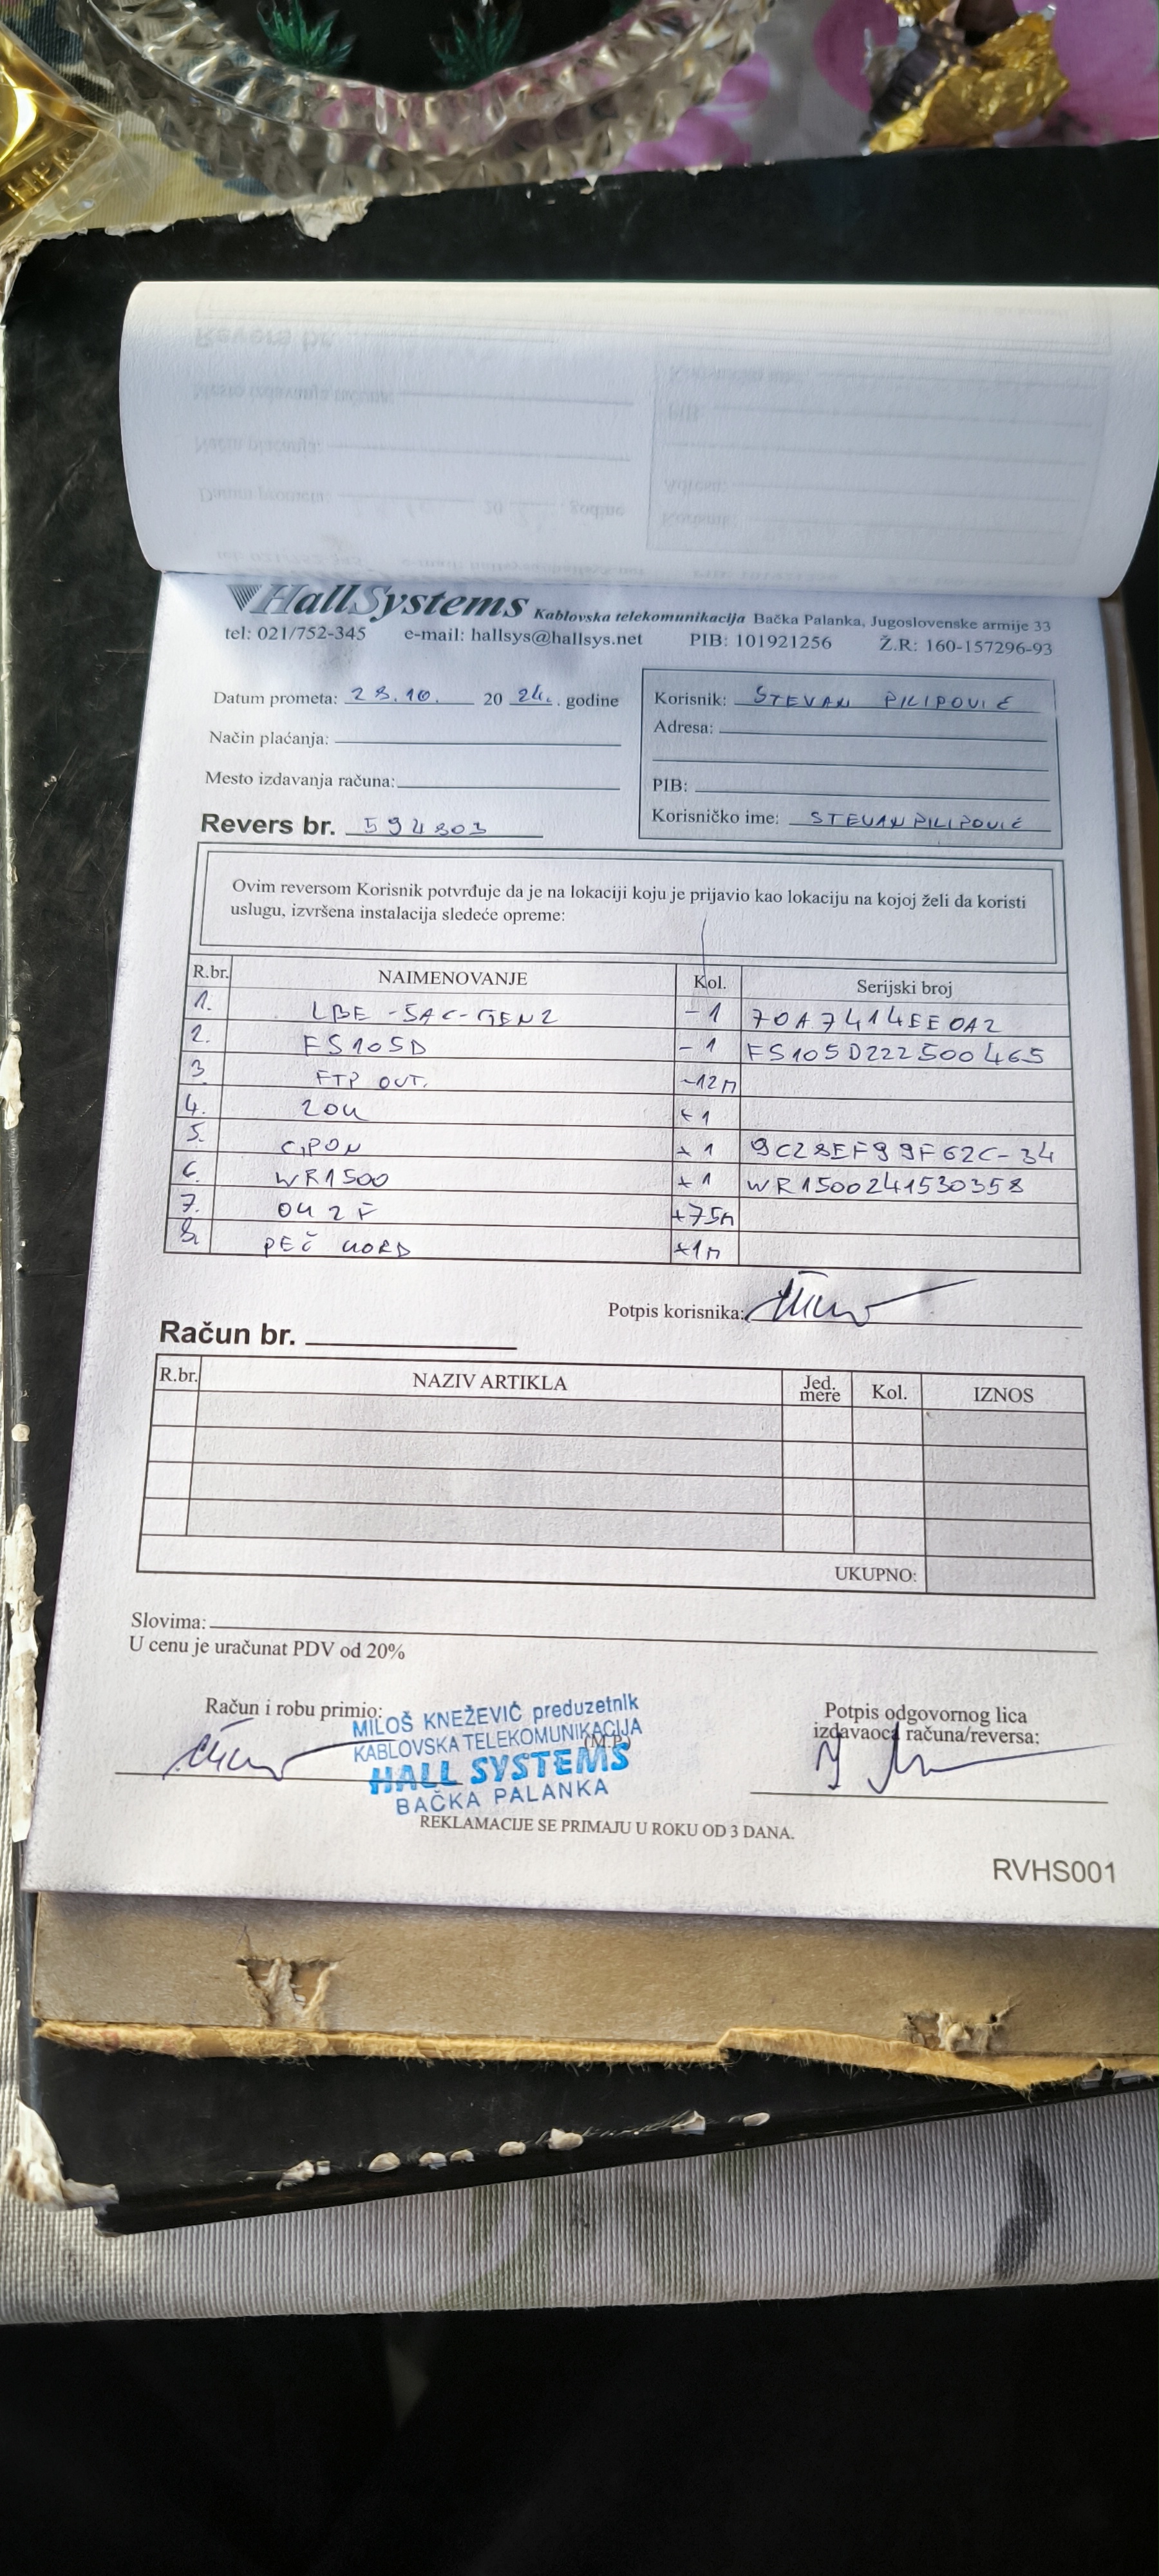 HallSystems Kablovska telekomunikacija Bačka Palanka, Jugoslovenske armije 33
tel: 021/752-345 e-mail: hallsys@hallsys.net PIB: 101921256 Ž.R: 160-157296-93
Datum prometa: 28.10. 2024. godine
Način plaćanja:
Mesto izdavanja računa:
Revers br. 594803
Korisnik: STEVAN PILIPOVIĆ
Adresa:
PIB:
Korisničko ime: STEVANPILIPOVIĆ
Ovim reversom Korisnik potvrđuje da je na lokaciji koju je prijavio kao lokaciju na kojoj želi da koristi
uslugu, izvršena instalacija sledeće opreme:
R.br. NAIMENOVANJE Kol. Serijski broj
1. LBE-5AC-GEN2 -1 70A7414EE0A2
2. FS105D -1 FS105D222500465
3 FTP OUT. -12m
4. ZOK +1
5. GPON +1 9C28EF99F62C-34
6. WR1500 +1 WR1500241530358
7. OK 2F +75m
8. PEČ KORD +1m
Potpis korisnika:
Račun br.
R.br. NAZIV ARTIKLA Jed. mere Kol. IZNOS
UKUPNO:
Slovima:
U cenu je uračunat PDV od 20%
Račun i robu primio:
MILOŠ KNEŽEVIĆ preduzetnik
KABLOVSKA TELEKOMUNIKACIJA
(M.P.)
HALL SYSTEMS
BAČKA PALANKA
Potpis odgovornog lica
izdavaoca računa/reversa:
REKLAMACIJE SE PRIMAJU U ROKU OD 3 DANA.
RVHS001